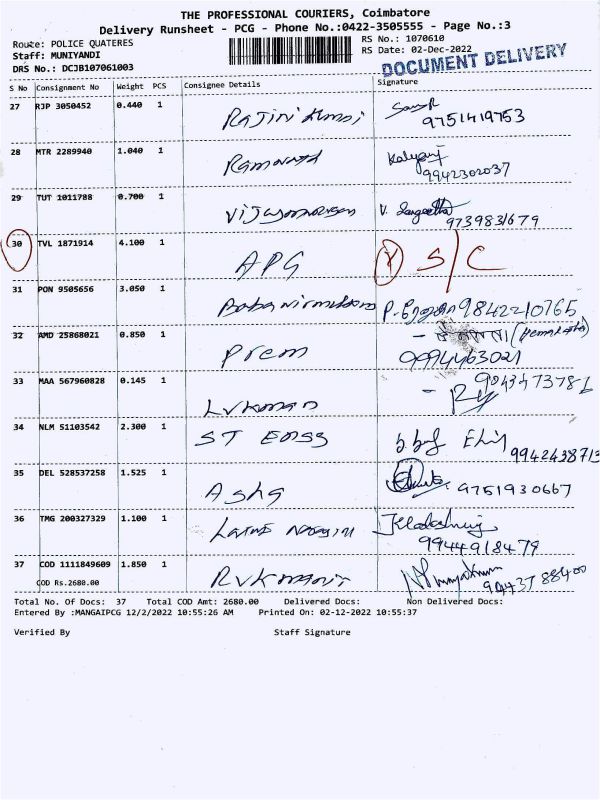 THE PROFESSIONAL COURIERS, Coimbatore
Delivery Runsheet - PCG - Phone No.:0422-3505555 - Page No.:3
Route: POLICE QUATERES
RS No.: 1070610
Staff: MUNIYANDI
RS Date: 02-Dec-2022
DRS No.: DCJB107061003
DOCUMENT DELIVERY
S No Consignment No Weight PCS Consignee Details Signature
27 RJP 3050452 0.440 1
9751419753
28 MTR 2289940 1.040 1
9942302037
29 TUT 1011788 0.700 1
V. Sangeetha
9739831679
30 TVL 1871914 4.100 1 APG S/C
31 PON 9505656 3.050 1 9842210765
32 AMD 25868021 0.850 1 Prem
9994463021
33 MAA 567960828 0.145 1 9043473781
34 NLM 51103542 2.300 1 ST
9942438713
35 DEL 528537258 1.525 1 Asha 9751930667
36 TMG 200327329 1.100 1
9944918479
37 COD 1111849609 1.850 1
COD Rs.2680.00
Total No. Of Docs: 37 Total COD Amt: 2680.00 Delivered Docs: Non Delivered Docs:
Entered By :MANGAIPCG 12/2/2022 10:55:26 AM Printed On: 02-12-2022 10:55:37
Verified By Staff Signature